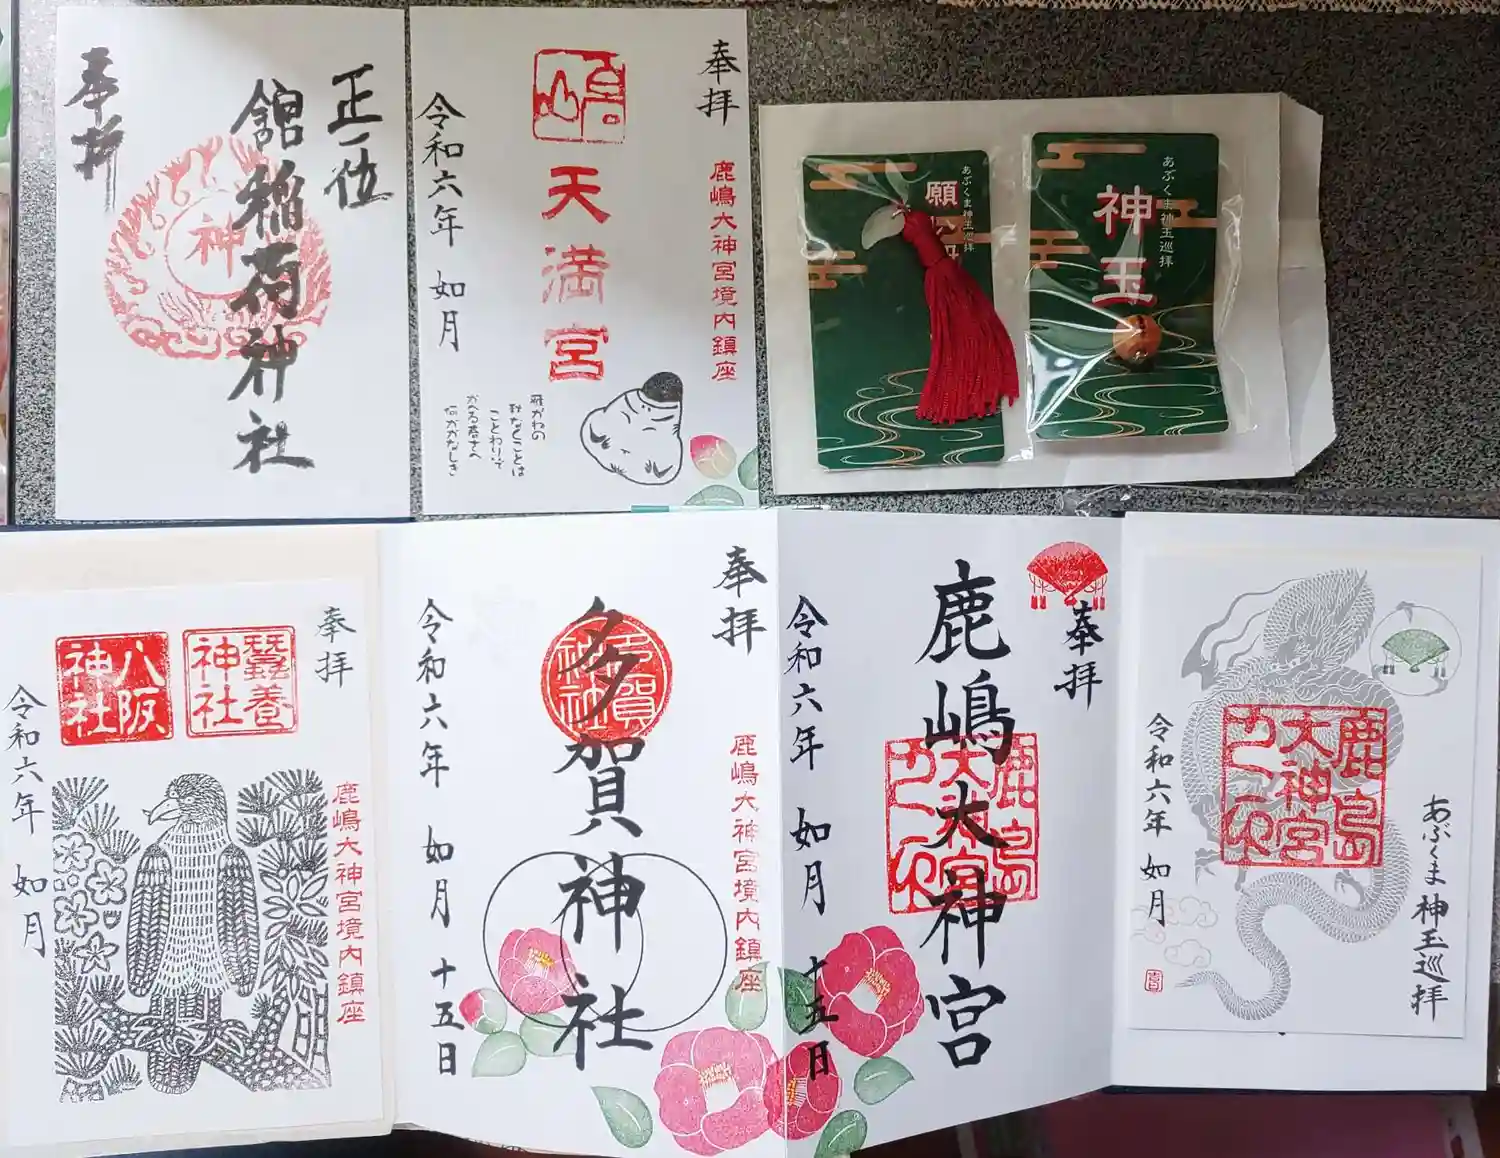 奉拝
正一位
舘稲荷神社
神
奉拝
鹿嶋大神宮境内鎮座
天満宮
令和六年 如月
あぶくま神玉巡拝
願
あぶくま神玉巡拝
神玉
奉拝
蠶養神社
八阪神社
鹿嶋大神宮境内鎮座
令和六年 如月
奉拝
多賀神社
多賀神社
鹿嶋大神宮境内鎮座
令和六年 如月 十五日
奉拝
鹿嶋大神宮
令和六年 如月 十五日
鹿島大神宮
あぶくま神玉巡拝
令和六年 如月